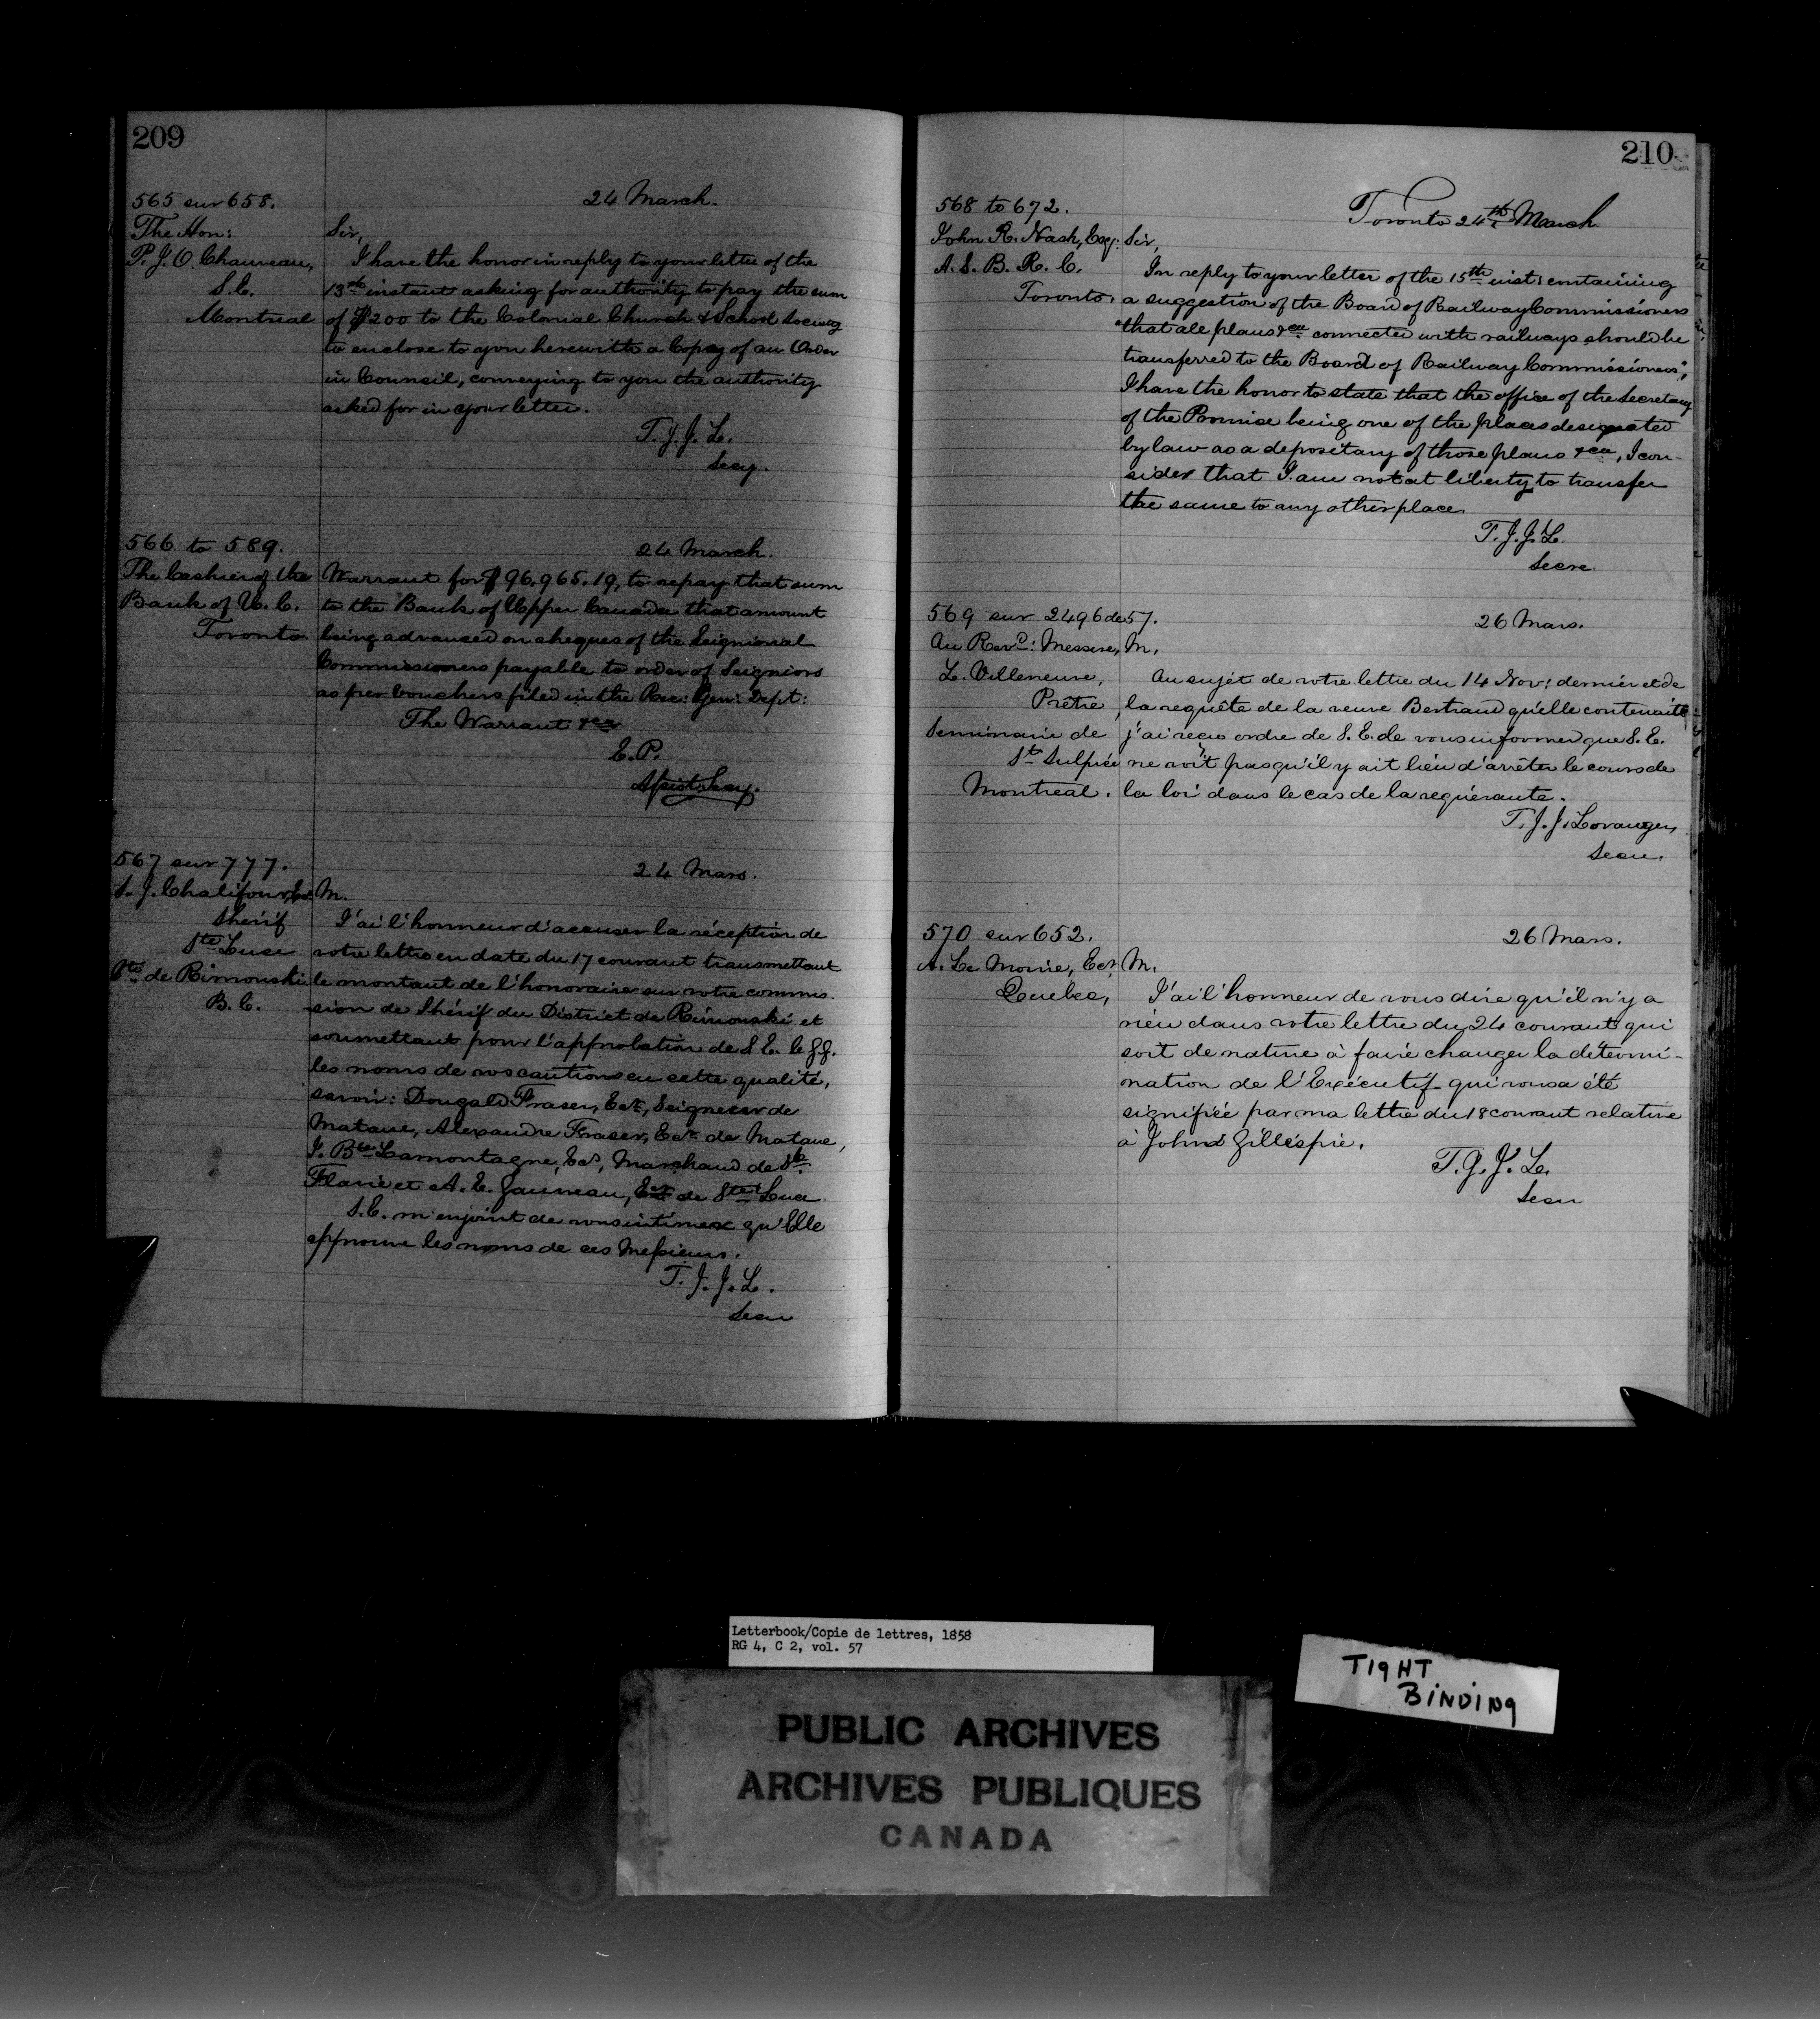 209
565 sur 658.
24 March.
The Hon:
P. J. O. Chauveau,
S. E.
Montreal
Sir,
I have the honor in reply to your letter of the
13th instant asking for authority to pay the sum
of $200 to the Colonial Church & School Society
to enclose to you herewith a Copy of an Order
in Council, conveying to you the authority
asked for in your letter.
T. J. J. L.
Secy.
566 to 589.
24 March.
The Cashier of the
Bank of U. C.
Toronto
Warrant for $96,965.19, to repay that sum
to the Bank of Upper Canada that amount
being advanced on cheques of the Seigniorial
Commissioners payable to order of Seigniors
as per Vouchers filed in the Rec: Gen: Dept:
The Warrant &ca
E. P.
Assist. Secy.
567 sur 777.
24 Mars.
S. J. Chalifour, Ecr
Shérif
Ste Luce
Cté de Rimouski
B. C.
M.
J'ai l'honneur d'accuser la réception de
votre lettre en date du 17 courant transmettant
le montant de l'honoraire sur votre commis-
sion de Shérif du District de Rimouski et
soumettant pour l'approbation de S. E. le G. G.
les noms de vos cautions en cette qualité,
savoir: Dougald Fraser, Ecr, Seigneur de
Matane, Alexandre Fraser, Ecr de Matane,
J. Bte Lamontagne, Ecr, Marchand de Ste
Flavie et A. E. Gauvreau, Ecr de Ste Luce
S. E. m'enjoint de vous intimer qu'Elle
approuve les noms de ces Messieurs.
T. J. J. L.
Secre
210
568 to 672.
Toronto 24th March
John R. Nash, Esqr:
A. S. B. R. C.
Toronto.
Sir,
In reply to your letter of the 15th inst: containing
a suggestion of the Board of Railway Commissioners
"that all plans &ca connected with railways should be
transferred to the Board of Railway Commissioners",
I have the honor to state that the office of the Secretary
of the Province being one of the places designated
by law as a depositary of those plans &ca, I con-
sider that I am not at liberty to transfer
the same to any other place.
T. J. J. L.
Secre.
569 sur 2496 de 57.
26 Mars.
Au Revd: Messire,
L. Villeneuve,
Prêtre,
Séminaire de
St Sulpice
Montreal.
M,
Au sujet de votre lettre du 14 Nov: dernier et de
la requête de la veuve Bertrand qu'elle contenait
j'ai reçu ordre de S. E. de vous informer que S. E.
ne voit pas qu'il y ait lieu d'arrêter le cours de
la loi dans le cas de la requérante.
T. J. J. Loranger,
Secre.
570 sur 652.
26 Mars.
A. Le Moine, Ecr,
Quebec,
M.
J'ai l'honneur de vous dire qu'il n'y a
rien dans votre lettre du 24 courant qui
soit de nature à faire changer la détermi-
nation de l'Exécutif qui vous a été
signifiée par ma lettre du 18 courant relative
à John Gillespie.
T. J. J. L.
Secre
Letterbook/Copie de lettres, 1858
RG 4, C 2, vol. 57
TIGHT
BINDING
PUBLIC ARCHIVES
ARCHIVES PUBLIQUES
CANADA